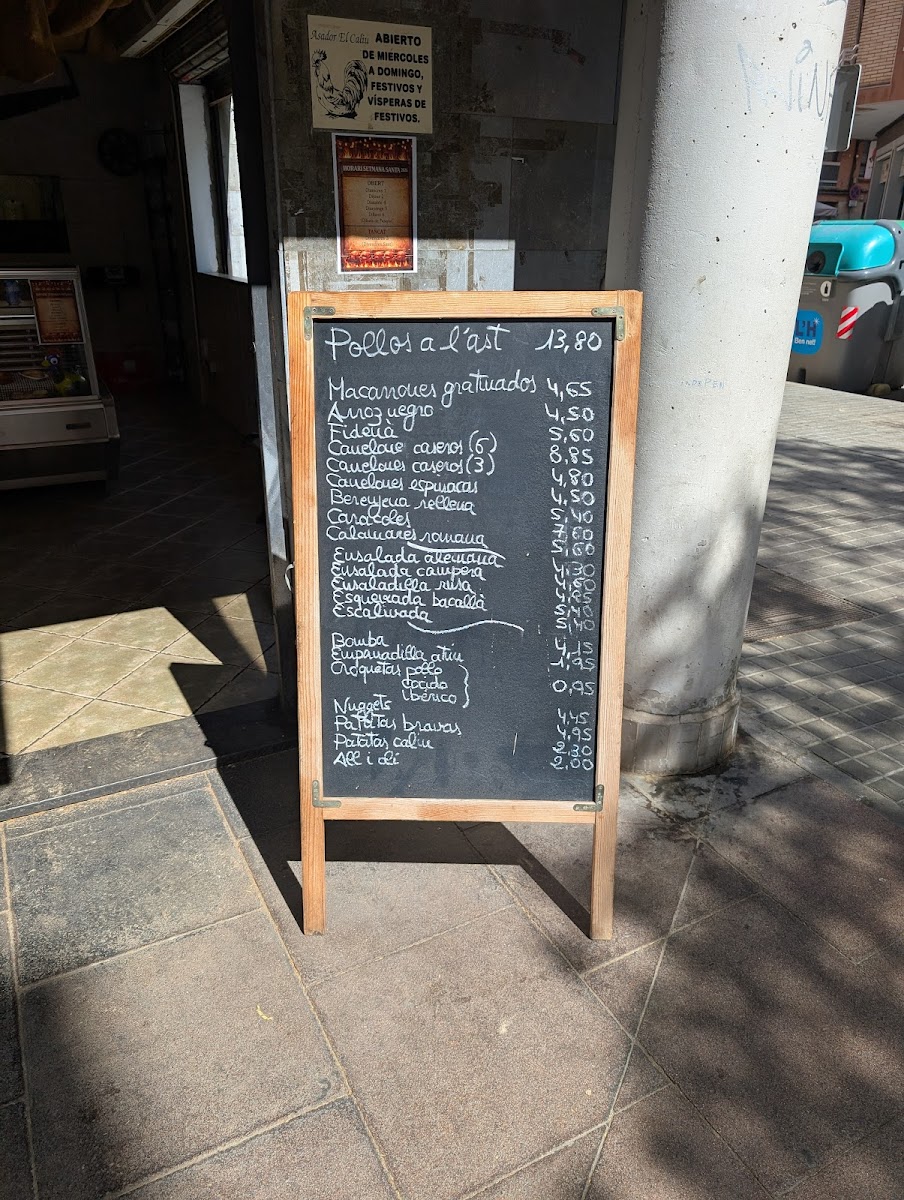 Asador El Caliu
ABIERTO
DE MIERCOLES
A DOMINGO,
FESTIVOS Y
VÍSPERAS DE
FESTIVOS.
HORARI SETMANA SANTA
OBERT
TANCAT
Pollos a l'ast 13,80
Macarrones gratinados 4,65
Arroz negro 4,50
Fideuà 5,60
Canelone caseros (6) 8,85
Canelones caseros (3) 4,80
Canelones espinacas 4,50
Berenjena rellena 5,40
Caracoles 7,60
Calamares romana 5,60
Ensalada alemana 4,30
Ensalada campera 4,60
Ensaladilla rusa 4,85
Esqueixada bacallà 5,40
Escalivada 5,40
Bomba 4,15
Empanadilla atún 1,95
Croquetas pollo
cocido 0,95
ibérico
Nuggets 4,45
Patatas bravas 4,95
Patatas caliu 2,30
All i oli 2,00
Ben net!